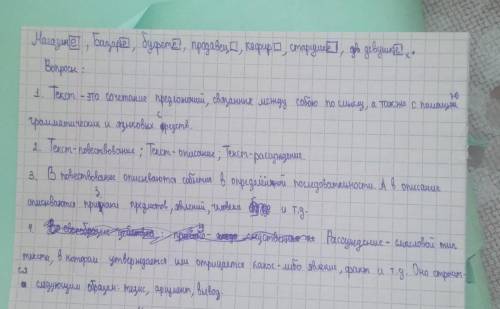 Магазин е, базар е, буфет е, продавец, кефир, старушк е, девушк е.
Вопросы:
1. Текст - это сочетание предложений, связанных между собою по смыслу, а также с помощью
грамматических и языковых средств.
2. Текст-повествование; Текст-описание; Текст-рассуждение.
3. В повествование описываются события в определённой последовательности. А в описание
описываются признаки предметов, явлений, человека и т.д.
4. Рассуждение - смысловой тип
текста, в котором утверждается или отрицается какое-либо явление, факт и т.д. Оно строит-
ся следующим образом: тезис, аргумент, вывод.